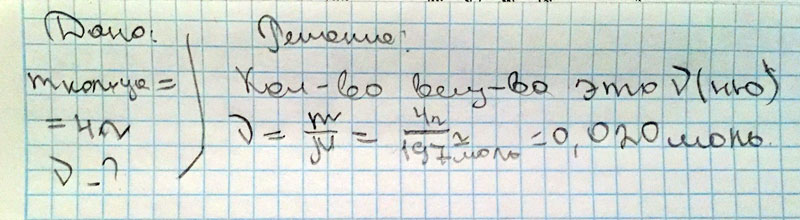 Дано:
m кольца =
= 4г
ν - ?
Решение:
Кол-во вещ-ва это ν (ню)
ν = m/M = 4г/197 г/моль = 0,020 моль.